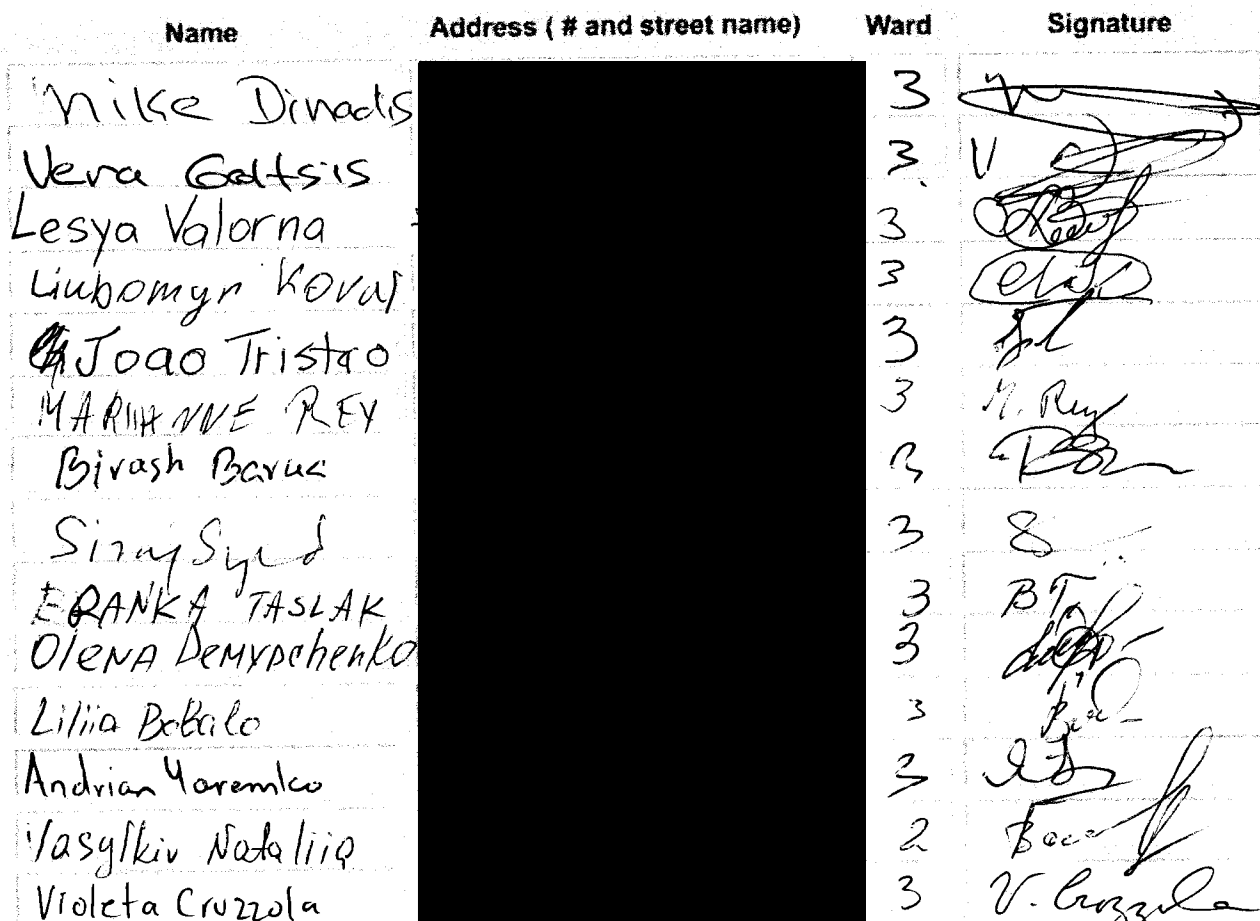 Name Address ( # and street name) Ward Signature
Nike Dinadis 3
Vera Galtsis 3 V
Lesya Valorna 3
Liubomyr Koval 3
Joao Tristao 3
MARIANNE REY 3 M. Rey
Birash Barua 3
Siraj Syed 3 S
BRANKA TASLAK 3 BT
OlENA Demydchenko 3
Liliia Bobalo 3
Andrian Yaremko 3
Vasylkiv Nataliia 2
Violeta Cruzzola 3 V. Cruzzola